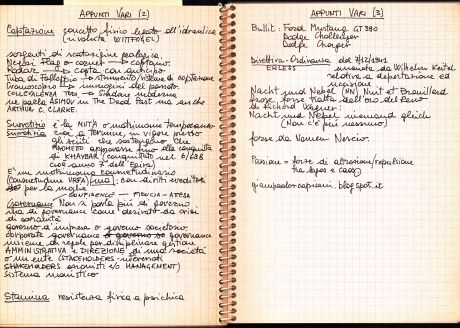 APPUNTI VARI (2)
Captazione concetto fisico legato all'idraulica
(rivoluta WITTFOGEL)
sorgenti di scaturigine geologica.
Nessai Flag o comet → captano.
Radar → capta con anticipo
Tuba di Falloppio → strumento/sistema di captazione
Cronoscopio → immagini del passato
ma quella ASIMOV in The Dead Past ma anche
ARTHUR C. CLARKE.
Sunnotio è la MUTA o matrimonio temporaneo
così a termine, in vigore presso
gli sciiti che sostengono che
MAOMETTO approvasse fino alla conquista
di KHAYBAR (conquistato nel 6/628
cioè anno 7° dell'Egira)
È un matrimonio consuetudinario
(consuetudine URFA) ma: con diritti ereditari
per la moglie
CONFIDENCE → FIDUCIA - ATTESA
Governance Non si parla più di governo
ma di governance come derivato da crisi
di sovranità
governo d'impresa o governo societario.
corporate governance o governo governance
insieme di regole per disciplinare gestione
AMMINISTRATIVA e DIREZIONE di una società
o un ente (STAKEHOLDERS interessati
SHAREHOLDERS azionisti e/o MANAGEMENT)
Sistema monistico
Stamina resistenza fisica o psichica
APPUNTI VARI (3)
Bullit: Ford Mustang GT 390
Dodge Challenger
Dodge Charger
Direttiva-Ordinanza del 7/12/1941
ERLESS emanata da Wilhelm Keitel
relativa a deportazione ed
Nacht und Nebel (NN) Nuit et Brouillard
frase forse tratta dall'oro del Reno
di Richard Wagner:
Nacht und Nebel niemand gleich
(Non c'è più nessuno)
forse da Women Nescio.
Passione = forze di attrazione/repulsione
tra topos e caos
gianpaolocapraini.blogspot.it